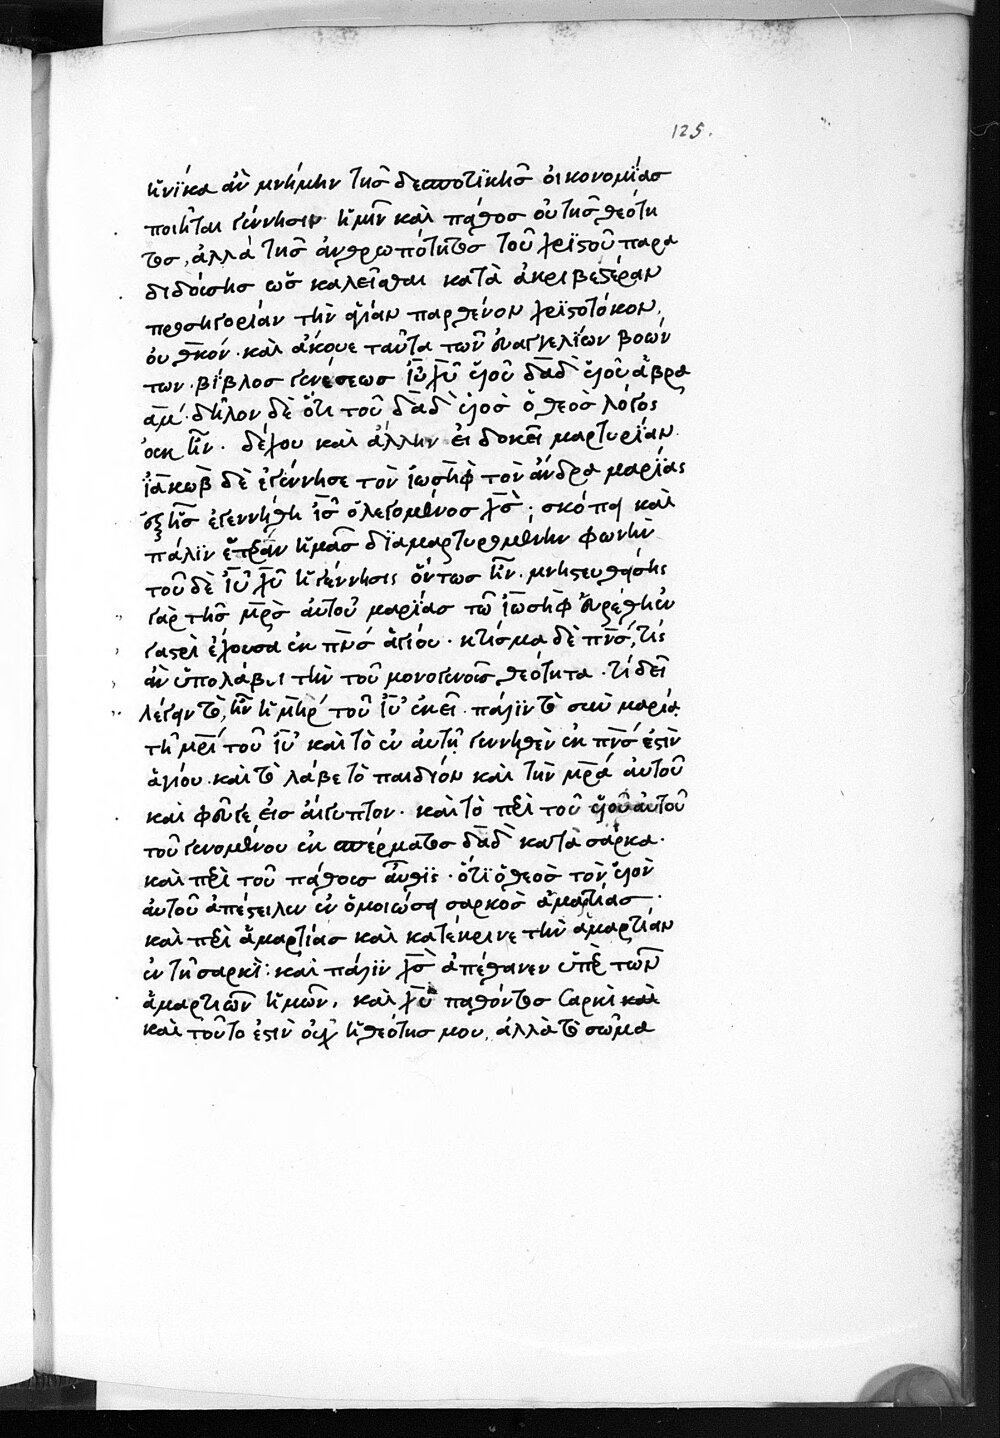 125.
ἡνίκα ἂν μνήμην τῆς δεσποτϊκῆς οἰκονομΐας
ποιῆται γέννησιν ἡμῖν καὶ πάθος οὐ τῆς θεότη
τος, ἀλλὰ τῆς ἀνθρωπότητος τοῦ χρϊστοῦ παρα
διδούσης ὡς καλεῖσθαι κατὰ ἀκριβεστέραν
προσηγορίαν τὴν ἁγίαν παρθένον χρϊστοτόκον,
οὐ θκόν · καὶ ἄκουε ταῦτα τῶν εὐαγγελίων βοών
των · βίβλος γενέσεως ἰυ χυ υἱοῦ δαδ υἱοῦ ἀβρα
άμ · δῆλον δὲ ὅτι τοῦ δαδ υἱὸς ὁ θεὸς λόγος
οὐκ ἦν · δέχου καὶ ἄλλην εἰ δοκεῖ μαρτυρίαν
ἰακὼβ δὲ ἐγέννησε τὸν ἰωσὴφ τὸν ἄνδρα μαρΐας
ἐξ ἧς ἐγεννήθη ις ὁ λεγόμενος χς · σκόπει καὶ
πάλϊν ἑτέραν ἡμᾶς δϊαμαρτυρομένην φωνὴν
τοῦ δὲ ἰυ χυ ἡ γέννησις οὕτως ἦν · μνηστευθείσης
γὰρ τῆς μρς αὐτοῦ μαρΐας τῶ ἰωσὴφ εὑρέθη ἐν
γαστρὶ ἔχουσα ἐκ πνς ἁγίου · κτίσμα δὲ πνς, τίς
ἂν ὑπολάβοι τὴν τοῦ μονογενοῦς θεότητα · τί δεῖ
λέγειν τὸ, ἦν ἡ μηρ τοῦ ἰυ ἐκεῖ · πάλϊν τὸ σὺν μαρία
τῆ μρι τοῦ ἰυ καὶ τὸ ἐν αὐτῆ γεννηθὲν ἐκ πνς ἐστὶν
ἁγίου · καὶ τὸ λάβε τὸ παιδίον καὶ τὴν μρα αὐτοῦ
καὶ φεῦγε εἰς αἴγυπτον · καὶ τὸ περὶ τοῦ υἱοῦ αὐτοῦ
τοῦ γενομένου ἐκ σπέρματος δαδ κατὰ σάρκα ·
καὶ περὶ τοῦ πάθους αὖθις · ὅτϊ ὁ θεὸς τὸν υἱὸν
αὐτοῦ ἀπέστειλεν ἐν ὁμοιώσει σαρκὸς ἁμαρτίας ·
καὶ περὶ ἁμαρτίας καὶ κατέκρινε τὴν ἁμαρτίαν
ἐν τῆ σαρκὶ · καὶ πάλϊν χς ἀπέθανεν ὑπὲρ τῶν
ἁμαρτιῶν ἡμῶν, καὶ χυ παθόντος σαρκὶ καὶ
καὶ τοῦτο ἐστὶν οὐχ ἡ θεότης μου, ἀλλὰ τὸ σῶμα